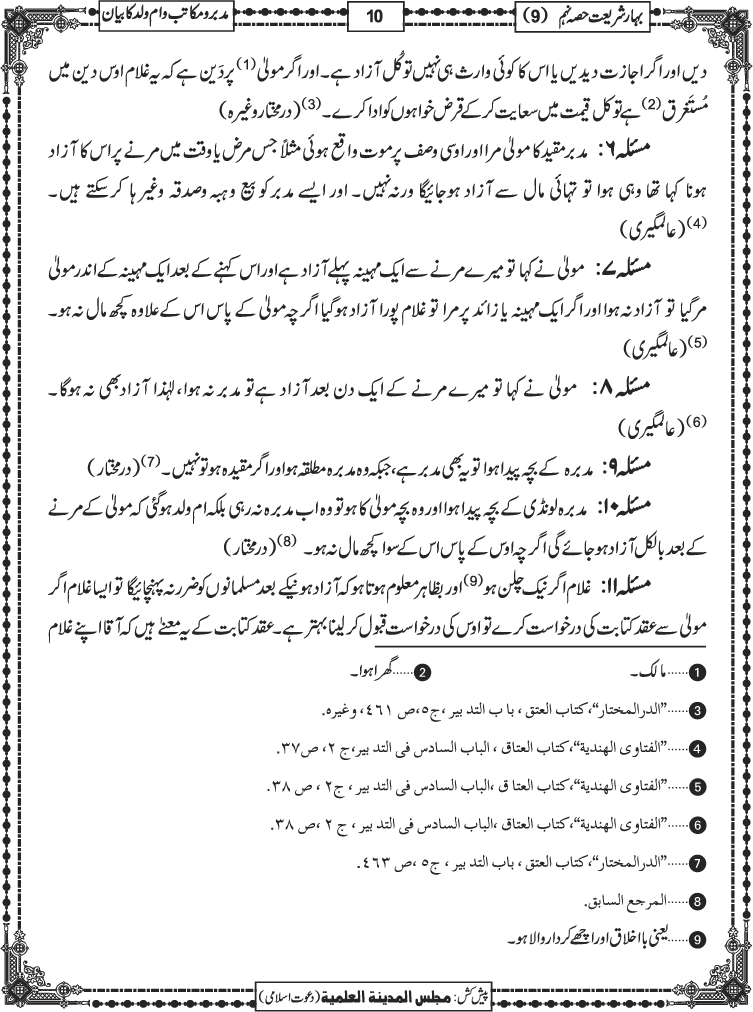 بہارشریعت حصہ نہم (9)
10
مدبر و مکاتب وام ولد کا بیان
دیں اور اگر اجازت دیدیں یا اس کا کوئی وارث ہی نہیں تو کُل آزاد ہے۔ اور اگر مولیٰ(1) پر دَین ہے کہ یہ غلام اوس دین میں
مُستَغرق(2) ہے تو کل قیمت میں سعایت کرکے قرض خواہوں کو ادا کرے۔(3) (درمختار وغیرہ)
مسئلہ ۶: مدبر مقید کا مولیٰ مرا اور اوسی وصف پر موت واقع ہوئی مثلاً جس مرض یا وقت میں مرنے پر اس کا آزاد
ہونا کہا تھا وہی ہوا تو تہائی مال سے آزاد ہوجائیگا ورنہ نہیں۔ اور ایسے مدبر کو بیع و ہبہ و صدقہ وغیرہا کرسکتے ہیں۔
(4) (عالمگیری)
مسئلہ ۷: مولیٰ نے کہا تو میرے مرنے سے ایک مہینہ پہلے آزاد ہے اور اس کہنے کے بعد ایک مہینہ کے اندر مولیٰ
مرگیا تو آزاد نہ ہوا اور اگر ایک مہینہ یا زائد پر مرا تو غلام پورا آزاد ہوگیا اگرچہ مولیٰ کے پاس اس کے علاوہ کچھ مال نہ ہو۔
(5) (عالمگیری)
مسئلہ ۸: مولیٰ نے کہا تو میرے مرنے کے ایک دن بعد آزاد ہے تو مدبر نہ ہوا، لہٰذا آزاد بھی نہ ہوگا۔
(6) (عالمگیری)
مسئلہ ۹: مدبرہ کے بچہ پیدا ہوا تو یہ بھی مدبر ہے، جبکہ وہ مدبرہ مطلقہ ہو اور اگر مقیدہ ہو تو نہیں۔(7) (درمختار)
مسئلہ ۱۰: مدبرہ لونڈی کے بچہ پیدا ہوا اور وہ بچہ مولیٰ کا ہو تو وہ اب مدبرہ نہ رہی بلکہ ام ولد ہوگئی کہ مولیٰ کے مرنے
کے بعد بالکل آزاد ہوجائے گی اگرچہ اوس کے پاس اس کے سوا کچھ مال نہ ہو۔(8) (درمختار)
مسئلہ ۱۱: غلام اگر نیک چلن ہو(9) اور بظاہر معلوم ہوتا ہو کہ آزاد ہونیکے بعد مسلمانوں کو ضرر نہ پہنچائیگا تو ایسا غلام اگر
مولیٰ سے عقد کتابت کی درخواست کرے تو اوس کی درخواست قبول کرلینا بہتر ہے۔ عقد کتابت کے یہ معنے ہیں کہ آقا اپنے غلام
1......مالک۔ 2......گھرا ہوا۔
3......"الدرالمختار"، کتاب العتق، باب التدبیر، ج٥، ص ٤٦١، وغیرہ.
4......"الفتاوی الھندیة"، کتاب العتاق، الباب السادس فی التدبیر، ج ٢، ص٣٧.
5......"الفتاوی الھندیة"، کتاب العتاق، الباب السادس فی التدبیر، ج٢، ص ٣٨.
6......"الفتاوی الھندیة"، کتاب العتاق، الباب السادس فی التدبیر، ج ٢، ص ٣٨.
7......"الدرالمختار"، کتاب العتق، باب التدبیر، ج٥، ص ٤٦٣.
8......المرجع السابق.
9......یعنی بااخلاق اور اچھے کردار والا ہو۔
پیش کش: مجلس المدینة العلمیة (دعوت اسلامی)